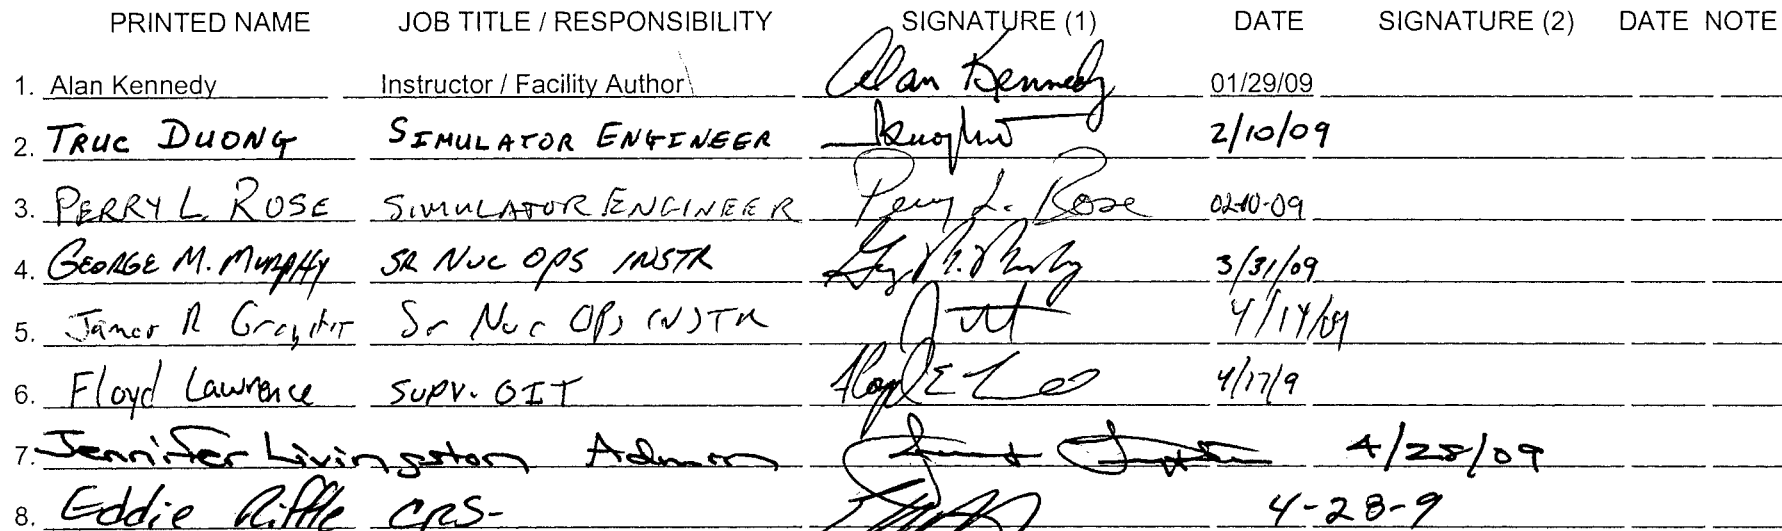 PRINTED NAME JOB TITLE / RESPONSIBILITY SIGNATURE (1) DATE SIGNATURE (2) DATE NOTE
1. Alan Kennedy Instructor / Facility Author Alan Kennedy 01/29/09
2. TRUC DUONG SIMULATOR ENGINEER 2/10/09
3. PERRY L. ROSE SIMULATOR ENGINEER Perry L. Rose 02-10-09
4. GEORGE M. MURPHY SR NUC OPS INSTR 3/31/09
5. James R Sr Nuc OPS INSTR 4/14/09
6. Floyd Lawrence SUPV. OIT 4/17/9
7. Jennifer Livingston Admin 4/28/09
8. Eddie Riffle CRS- 4-28-9